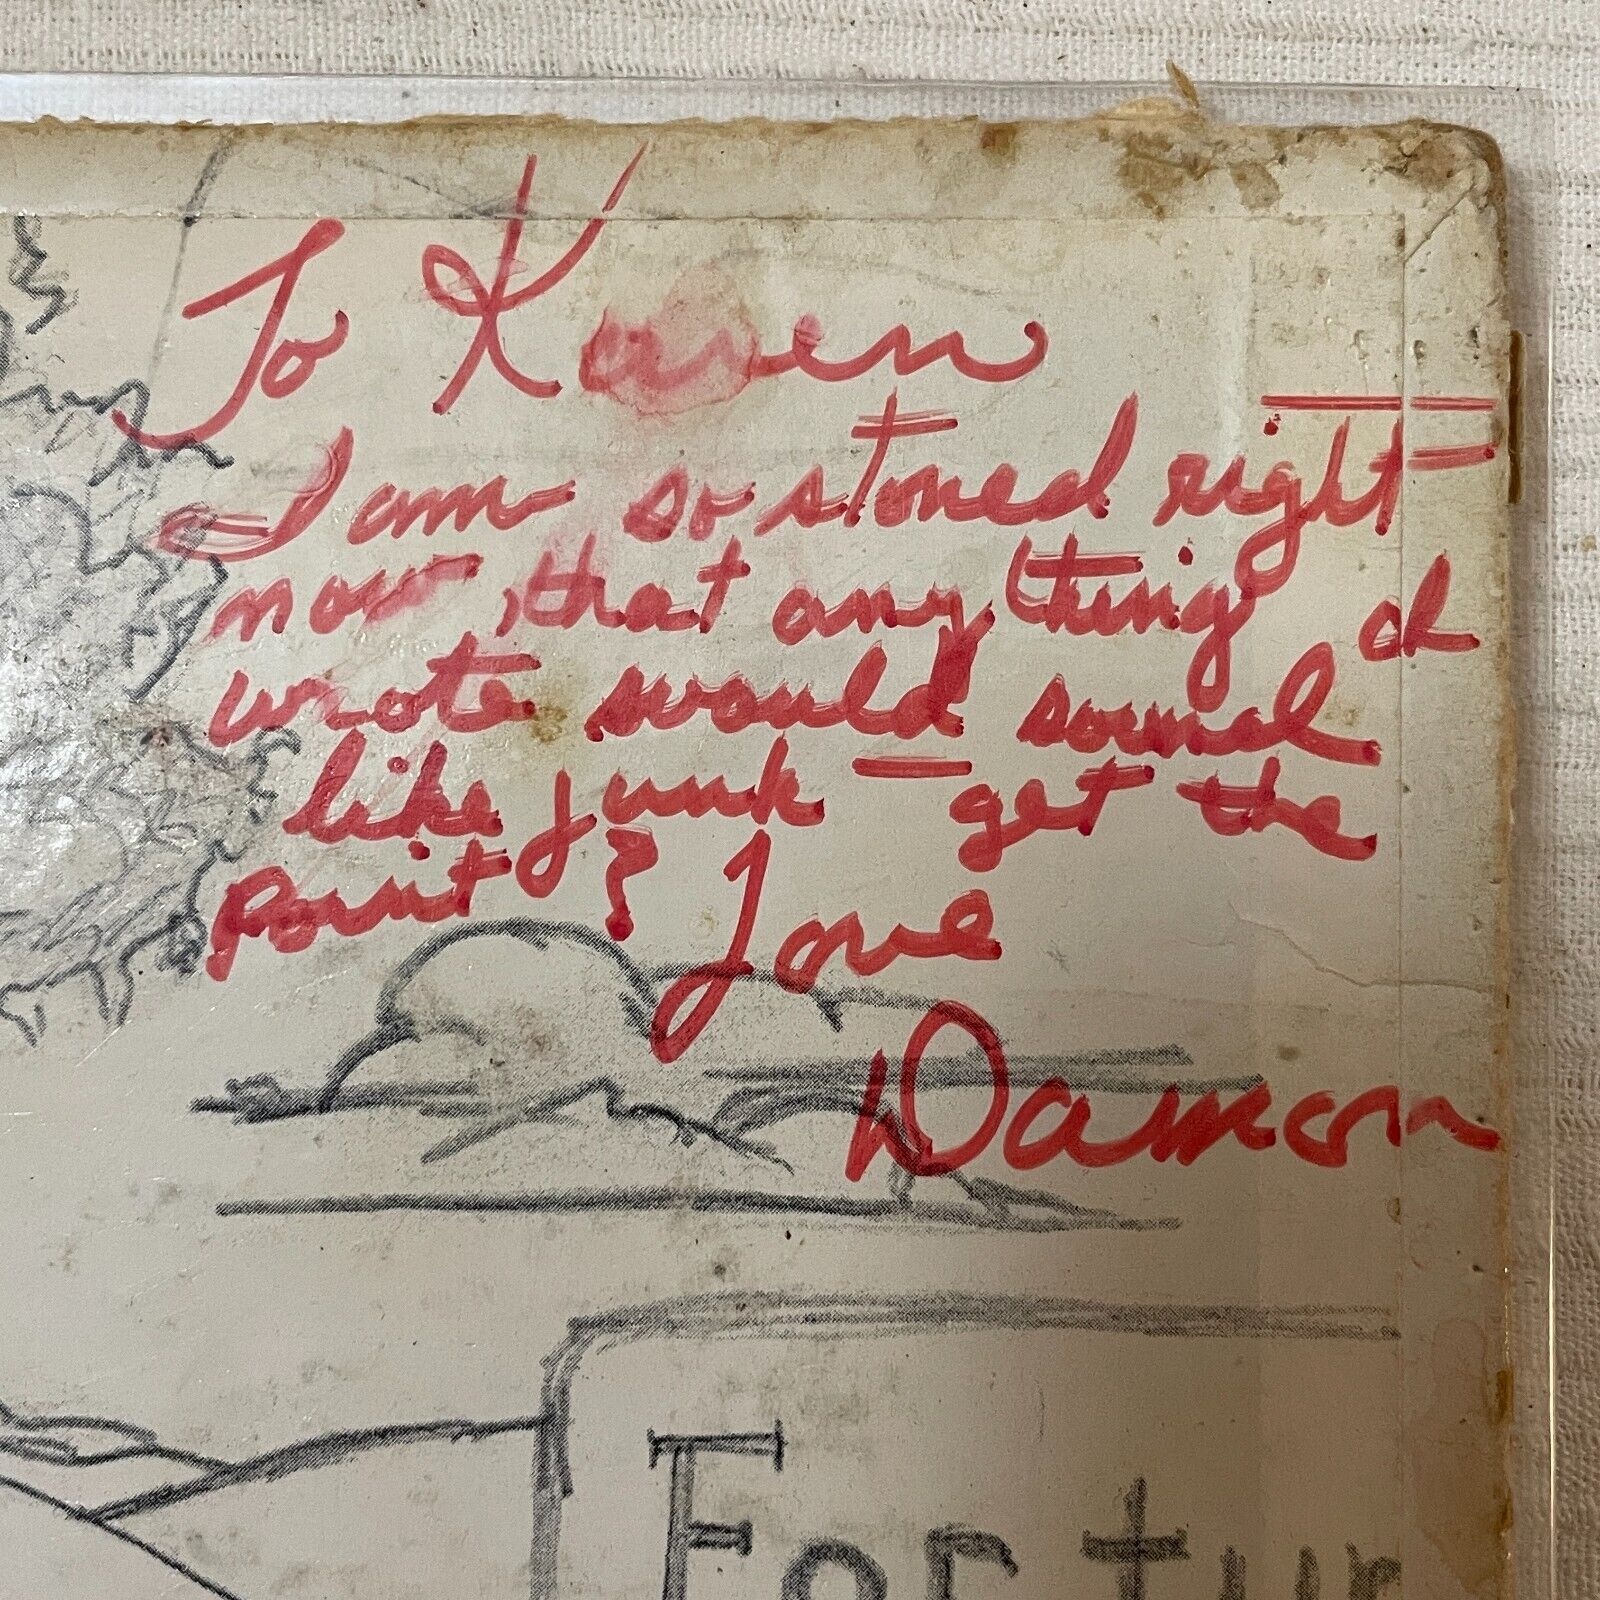 To Karen
I am so stoned right
now, that anything I
wrote would sound
like junk – get the
point? Love
Damon
Fortun